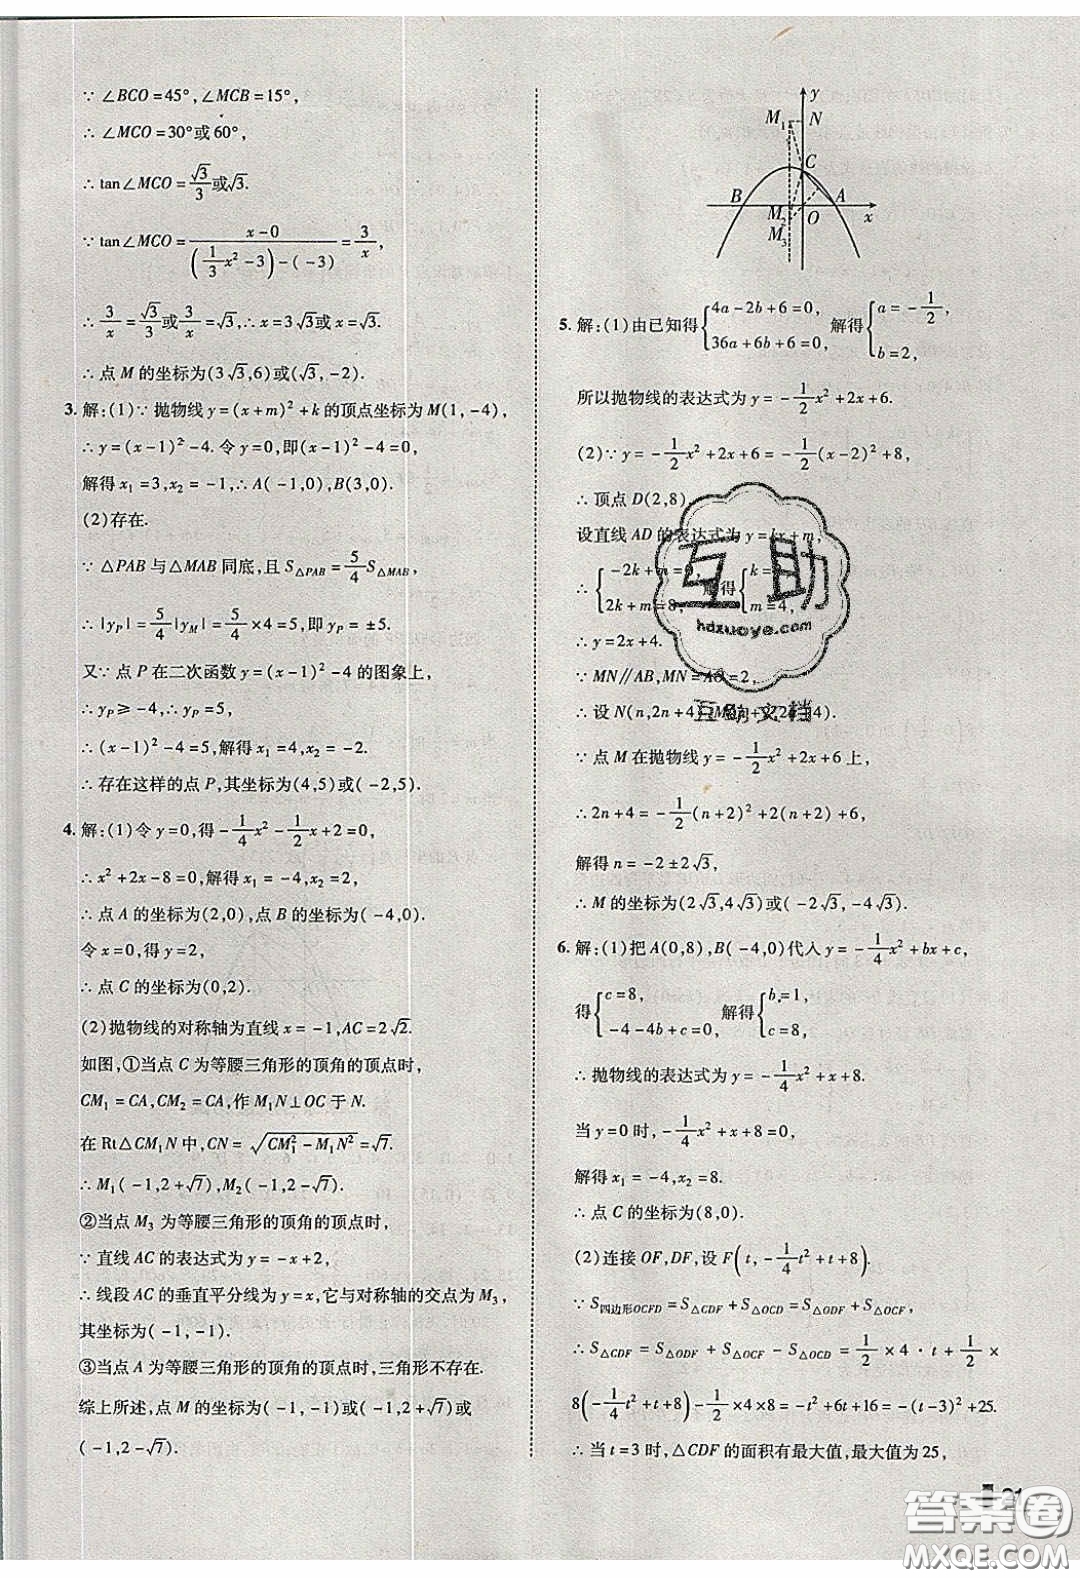 ∵ ∠BCO=45°,∠MCB=15°,
∴ ∠MCO=30°或60°,
∴ tan∠MCO=√3/3或√3.
∵ tan∠MCO=(x-0)/((1/3x²-3)-(-3))=3/x,
∴ 3/x=√3/3或3/x=√3,∴ x=3√3或x=√3.
∴ 点 M 的坐标为(3√3,6)或(√3,-2).
3. 解:(1)∵ 抛物线 y=(x+m)²+k 的顶点坐标为 M(1,-4),
∴ y=(x-1)²-4. 令 y=0,即(x-1)²-4=0,
解得 x₁=3,x₂=-1,∴ A(-1,0),B(3,0).
(2)存在.
∵ △PAB 与△MAB 同底,且 S△PAB=5/4 S△MAB,
∴ |yP|=5/4|yM|=5/4×4=5,即 yP=±5.
又∵ 点 P 在二次函数 y=(x-1)²-4 的图象上,
∴ yP≥-4,∴ yP=5,
∴ (x-1)²-4=5,解得 x₁=4,x₂=-2.
∴ 存在这样的点 P,其坐标为(4,5)或(-2,5).
4. 解:(1)令 y=0,得-1/4x²-1/2x+2=0,
∴ x²+2x-8=0,解得 x₁=-4,x₂=2,
∴ 点 A 的坐标为(2,0),点 B 的坐标为(-4,0).
令 x=0,得 y=2,
∴ 点 C 的坐标为(0,2).
(2)抛物线的对称轴为直线 x=-1,AC=2√2.
如图,①当点 C 为等腰三角形的顶角的顶点时,
CM₁=CA,CM₂=CA,作 M₁N⊥OC 于 N.
在 Rt△CM₁N 中,CN=√(CM₁²-M₁N²)=√7.
∴ M₁(-1,2+√7),M₂(-1,2-√7).
②当点 M₃ 为等腰三角形的顶角的顶点时,
∵ 直线 AC 的表达式为 y=-x+2,
∴ 线段 AC 的垂直平分线为 y=x,它与对称轴的交点为 M₃,
其坐标为(-1,-1).
③当点 A 为等腰三角形的顶角的顶点时,三角形不存在.
综上所述,点 M 的坐标为(-1,-1)或(-1,2+√7)或
(-1,2-√7).
y
M₁ N
C
B A
M₂ O x
M₃
5. 解:(1)由已知得{4a-2b+6=0, 36a+6b+6=0, 解得{a=-1/2, b=2,
所以抛物线的表达式为 y=-1/2x²+2x+6.
(2)∵ y=-1/2x²+2x+6=-1/2(x-2)²+8,
∴ 顶点 D(2,8).
设直线 AD 的表达式为 y=kx+m,
∴ {-2k+m=0, 2k+m=8, 解得{k= m=4,
∴ y=2x+4.
∵ MN∥AB,MN=AO=2,
∴ 设 N(n,2n+4),M(n+2,2n+4).
∵ 点 M 在抛物线 y=-1/2x²+2x+6 上,
∴ 2n+4=-1/2(n+2)²+2(n+2)+6,
解得 n=-2±2√3,
∴ M 的坐标为(2√3,4√3)或(-2√3,-4√3).
6. 解:(1)把 A(0,8),B(-4,0)代入 y=-1/4x²+bx+c,
得{c=8, -4-4b+c=0, 解得{b=1, c=8,
∴ 抛物线的表达式为 y=-1/4x²+x+8.
当 y=0 时,-1/4x²+x+8=0,
解得 x₁=-4,x₂=8.
∴ 点 C 的坐标为(8,0).
(2)连接 OF,DF,设 F(t,-1/4t²+t+8),
∵ S四边形OCFD=S△CDF+S△OCD=S△ODF+S△OCF,
∴ S△CDF=S△ODF+S△OCF-S△OCD=1/2×4·t+1/2×
8(-1/4t²+t+8)-1/2×4×8=-t²+6t+16=-(t-3)²+25.
∴ 当 t=3 时,△CDF 的面积有最大值,最大值为 25,
互助
hdzuoye.com
互助文档
答案圈
MXQE.COM